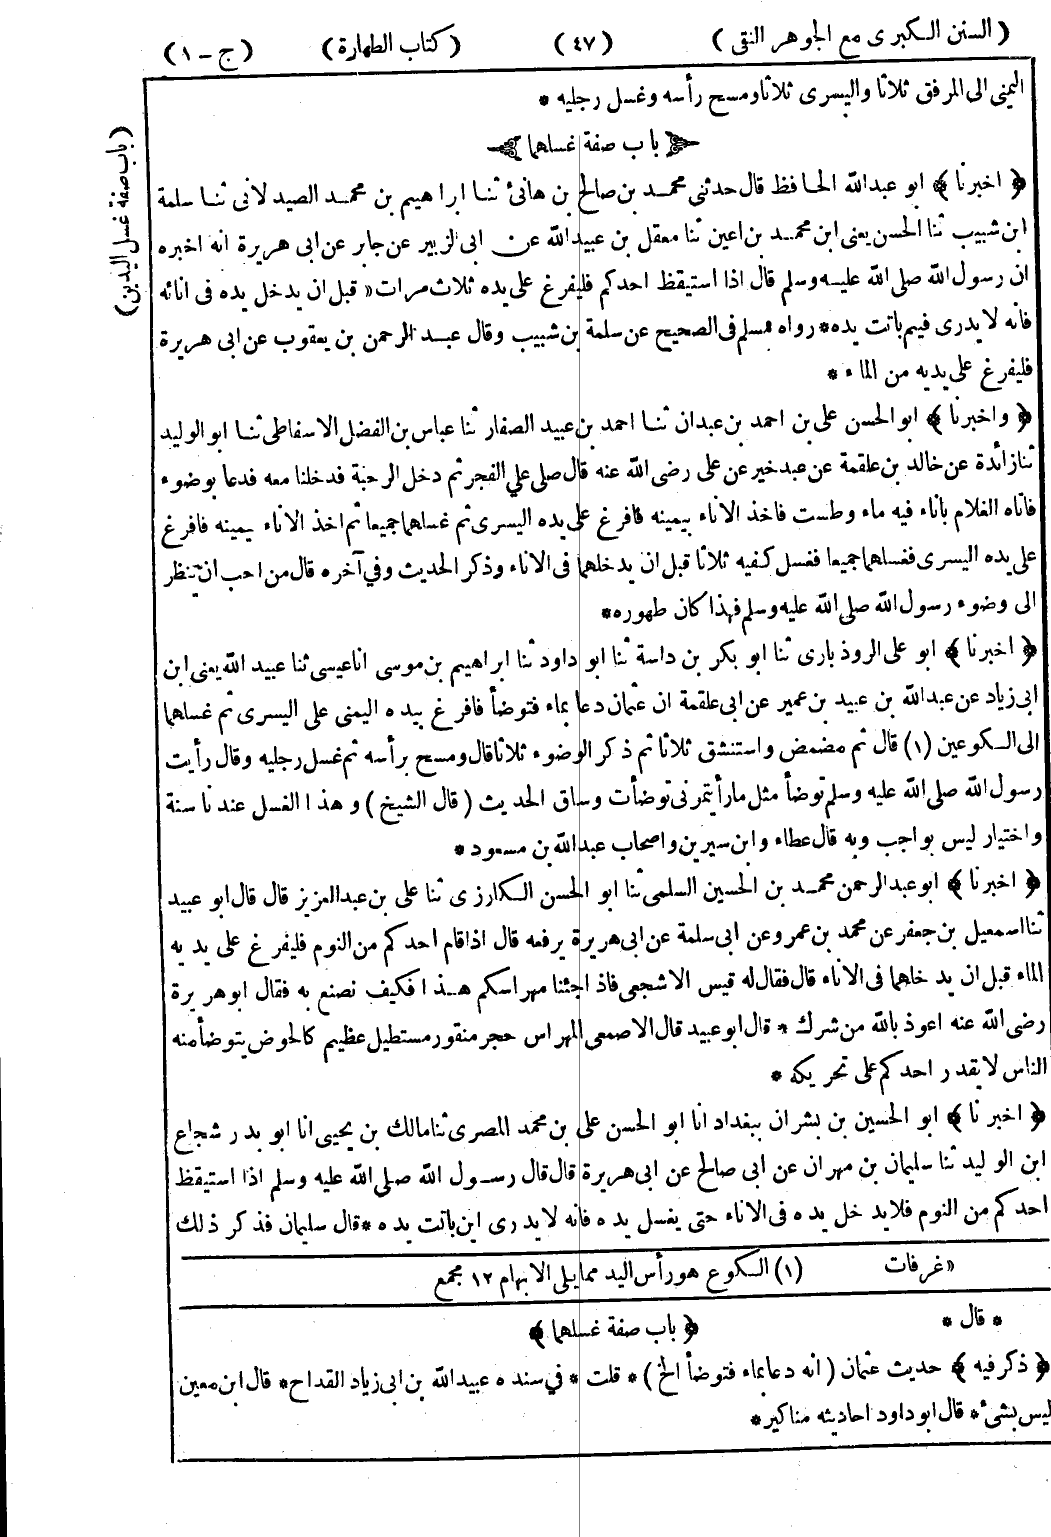 ( السنن الكبرى مع الجوهر النقى ) ( ٤٧ ) ( كتاب الطهارة ) ( ج - ١ )
اليمنى الى المرفق ثلاثا واليسرى ثلاثا ومسح رأسه وغسل رجليه *
باب صفة غسلهما
( باب صفة غسل اليدين )
﴿ اخبرنا ﴾ ابو عبد الله الحافظ قال حدثنى محمد بن صالح بن هانئ ثنا ابراهيم بن محمد الصيدلانى ثنا سلمة
ابن شبيب ثنا الحسن يعنى ابن محمد بن اعين ثنا معقل بن عبيد الله عن ابى الزبير عن جابر عن ابى هريرة انه اخبره
ان رسول الله صلى الله عليه وسلم قال اذا استيقظ احدكم فليفرغ على يده ثلاث مرات« قبل ان يدخل يده فى انائه
فانه لا يدرى فيم باتت يده* رواه مسلم فى الصحيح عن سلمة بن شبيب وقال عبد الرحمن بن يعقوب عن ابى هريرة
فليفرغ على يديه من الماء *
﴿ واخبرنا ﴾ ابو الحسن على بن احمد بن عبدان ثنا احمد بن عبيد الصفار ثنا عباس بن الفضل الاسفاطى ثنا ابو الوليد
ثنا زائدة عن خالد بن علقمة عن عبد خير عن على رضى الله عنه قال صلى علي الفجر ثم دخل الرحبة فدخلنا معه فدعا بوضوء
فاتاه الغلام باناء فيه ماء وطست فاخذ الاناء بيمينه فافرغ على يده اليسرى ثم غسلهما جميعا ثم اخذ الاناء بيمينه فافرغ
على يده اليسرى فغسلهما جميعا فغسل كفيه ثلاثا قبل ان يدخلهما فى الاناء وذكر الحديث وفي آخره قال من احب ان ينظر
الى وضوء رسول الله صلى الله عليه وسلم فهذا كان طهوره*
﴿ اخبرنا ﴾ ابو على الروذبارى ثنا ابو بكر بن داسة ثنا ابو داود ثنا ابراهيم بن موسى انا عيسى ثنا عبيد الله يعنى ابن
ابى زياد عن عبد الله بن عبيد بن عمير عن ابى علقمة ان عثمان دعا بماء فتوضأ فافرغ بيده اليمنى على اليسرى ثم غسلهما
الى الكوعين (١) قال ثم مضمض واستنشق ثلاثا ثم ذكر الوضوء ثلاثا قال ومسح برأسه ثم غسل رجليه وقال رأيت
رسول الله صلى الله عليه وسلم توضأ مثل ما رأيتمونى توضأت وساق الحديث ( قال الشيخ ) وهذا الغسل عندنا سنة
واختيار ليس بواجب وبه قال عطاء وابن سيرين واصحاب عبد الله بن مسعود *
﴿ اخبرنا ﴾ ابو عبد الرحمن محمد بن الحسين السلمى ثنا ابو الحسن الكارزى ثنا على بن عبد العزيز قال قال ابو عبيد
ثنا اسمعيل بن جعفر عن محمد بن عمرو عن ابى سلمة عن ابى هريرة يرفعه قال اذا قام احدكم من النوم فليفرغ على يديه
الماء قبل ان يدخلهما فى الاناء قال فقال له قيس الاشجعى فاذا جئنا مهراسكم هذا فكيف نصنع به فقال ابو هريرة
رضى الله عنه اعوذ بالله من شرك * قال ابو عبيد قال الاصمعى المهراس حجر منقور مستطيل عظيم كالحوض يتوضأ منه
الناس لا يقدر احدكم على تحريكه *
﴿ اخبرنا ﴾ ابو الحسين بن بشران ببغداد انا ابو الحسن على بن محمد المصرى ثنا مالك بن يحيى انا ابو بدر شجاع
ابن الوليد ثنا سليمان بن مهران عن ابى صالح عن ابى هريرة قال قال رسول الله صلى الله عليه وسلم اذا استيقظ
احدكم من النوم فلا يدخل يده فى الاناء حتى يغسل يده فانه لا يدرى اين باتت يده *قال سليمان فذكر ذلك
«غرفات (١) الكوع هو رأس اليد مما يلى الابهام ١٢ مجمع
* قال * ﴿ باب صفة غسلهما ﴾
﴿ ذكر فيه ﴾ حديث عثمان ( انه دعا بماء فتوضأ الخ )* قلت * في سنده عبيد الله بن ابى زياد القداح* قال ابن معين
ليس بشئ* قال ابو داود احاديثه مناكير*